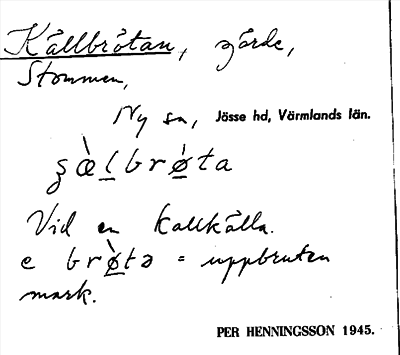 Källbråtan, gärde,
Stommen,
Ny sn, Jösse hd, Värmlands län.
ʂæ̀l̲brø̲̀ta
Vid en kallkälla.
e brø̲̀tə = uppbruten
mark.
PER HENNINGSSON 1945.